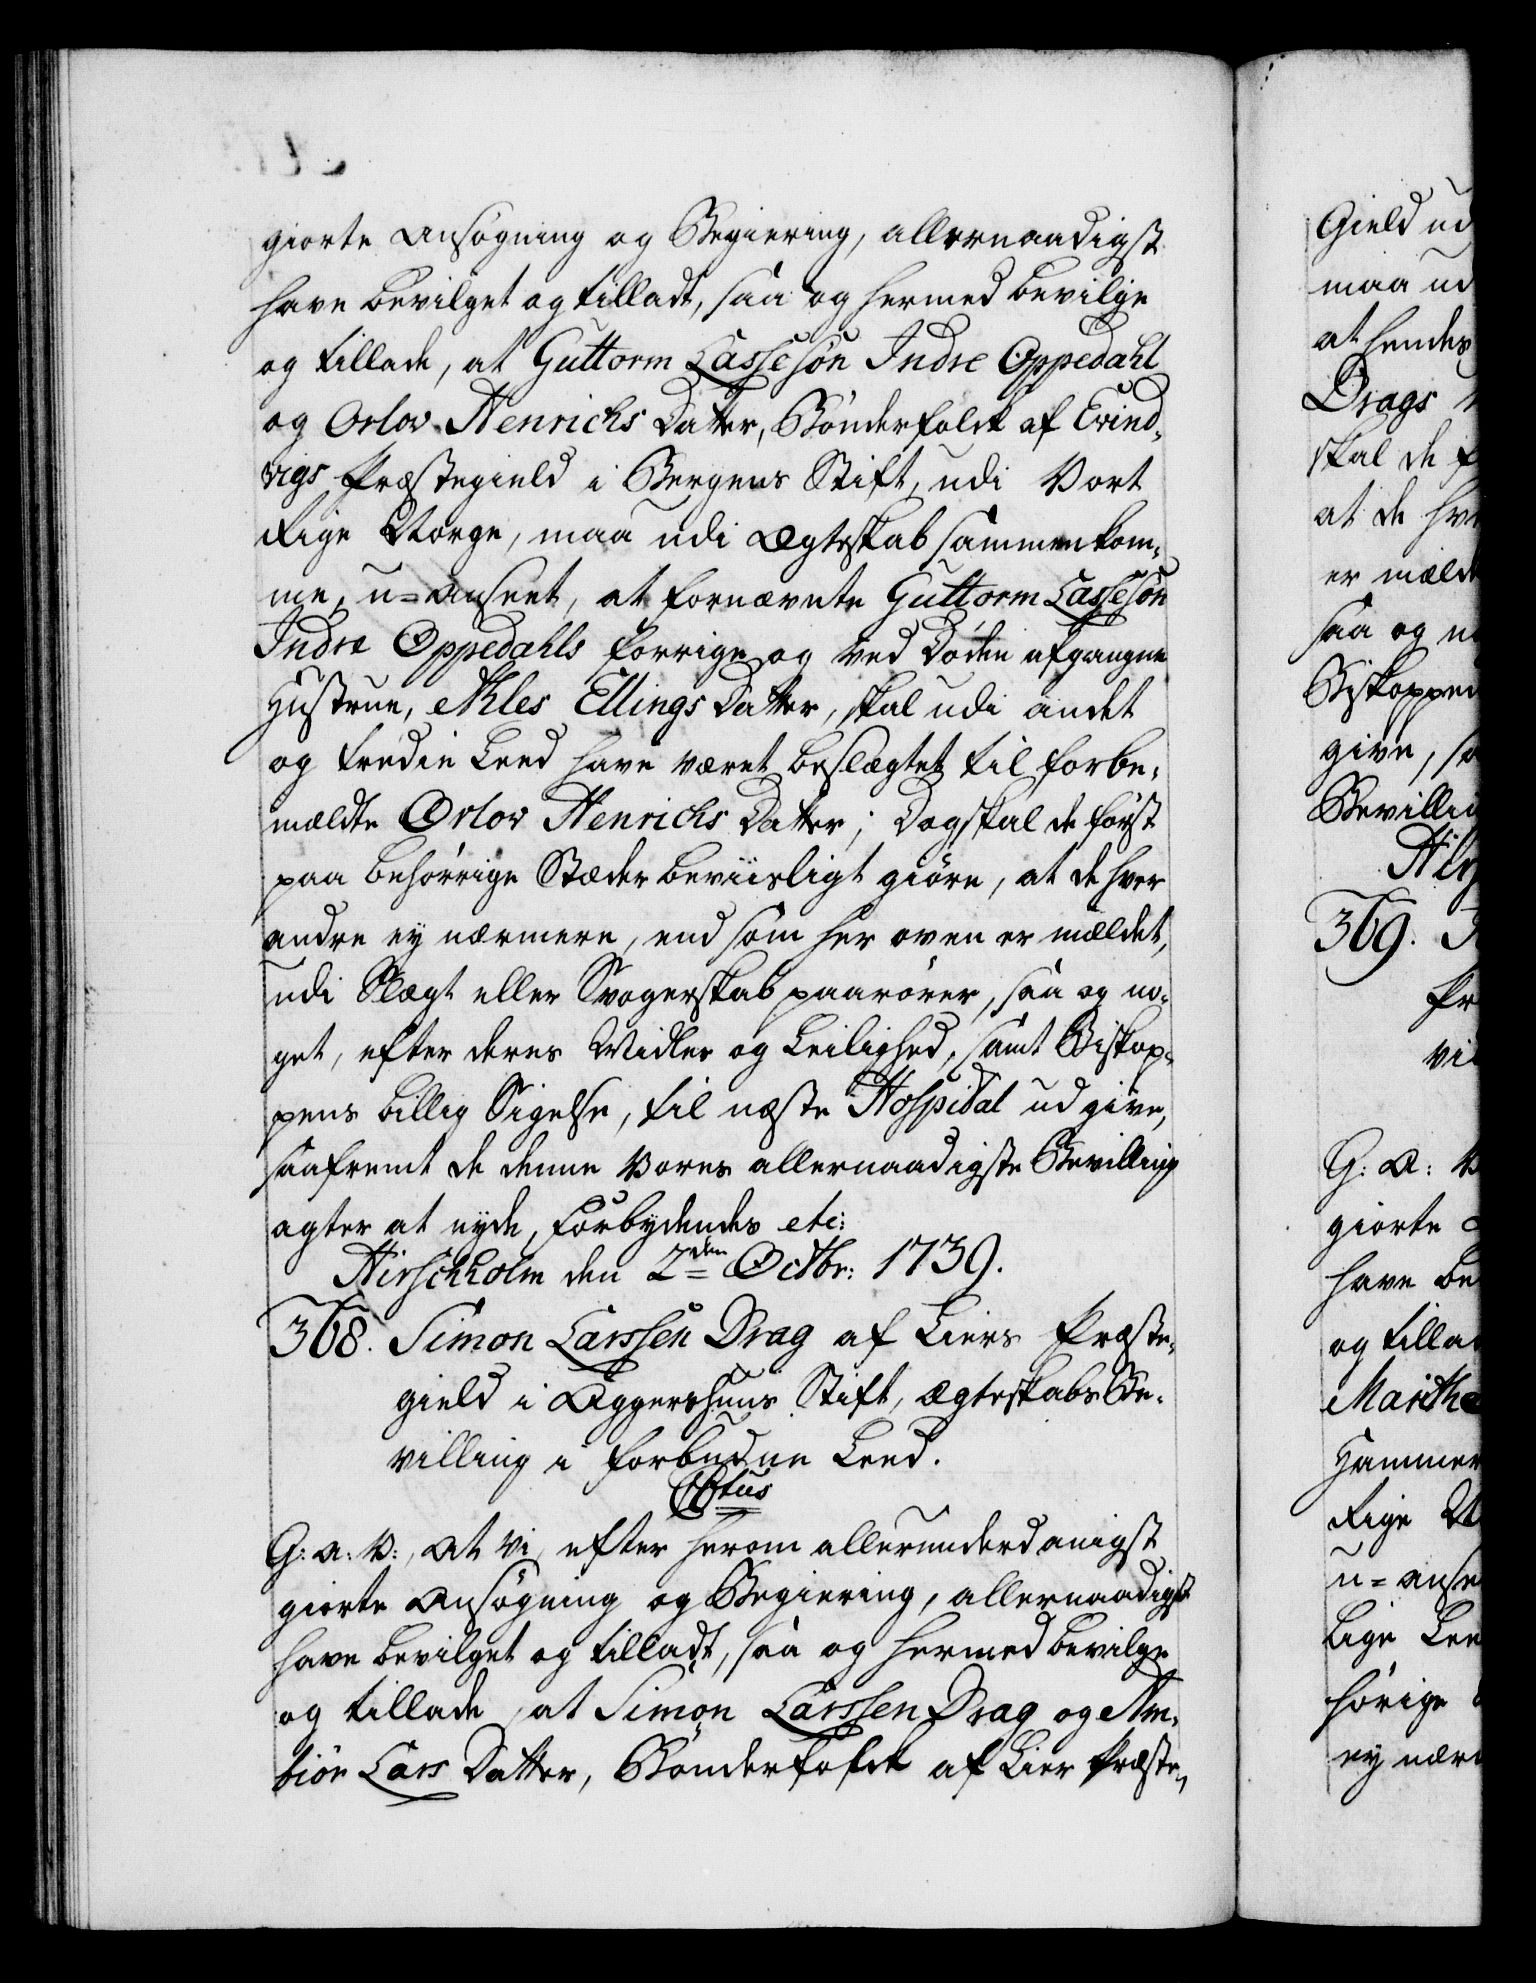 giorte Ansøgning og Begiering, allernaadigst
have bevilget og tilladt, saa og hermed bevilge
og tillade, at Guttorm Lassesøn Indre Oppedahl
og Orlov Henrichs Datter, Bønderfolck af Evind-
vigs Præstegield i Bergens Stift, udi Vort
Rige Norge, maa udi Ægteskab sammenkom-
me, u=anseet, at fornævnte Guttorm Lassesøn
Indre Oppedahls forrige og ved Døden afgangne
Hustrue, Ahles Ellings Datter, skal udi andet
og tredie Leed have været beslægtet til forbe-
mældte Orlov Henrichs Datter; Dog skal de først
paa behørrige Stæder beviisligt giøre, at de hver
andre ey nærmere, end som her oven er mældet,
udi Slægt eller Svogerskab paarører, saa og no-
get, efter deres Midler og Leilighed, samt Biskop-
pens billig Sigelse, til næste Hospital udgive,
saafremt de denne Vores allernaadigste Bevilling
agter at nyde, Forbydendes etc:
Hirschholm den 2den Octbr: 1739.
368. Simon Larssen Drag af Liers Præste-
gield i Aggershuus Stift, Ægteskabs Be-
villing i forbudne Leed.
C6tus
G: a: V:, At vi, efter herom allerunderdanigst
giorte Ansøgning og Begiering, allernaadigst
have bevilget og tilladt, saa og hermed bevilge
og tillade, at Simon Larssen Drag og Am-
biør Lars Datter, Bønderfolck af Lier Præste-
Gield ud
maa ud
at hendes
Drags
skal de f
at de hve
er mældt
saa og n
Biskoppen
give, sa
Bevillin
369.
Pr
vi
G: A: V
giorte
have be
og tillad
Marithe
Hammer
Rige N
u=anse
Lige Lee
hørige
ey nær